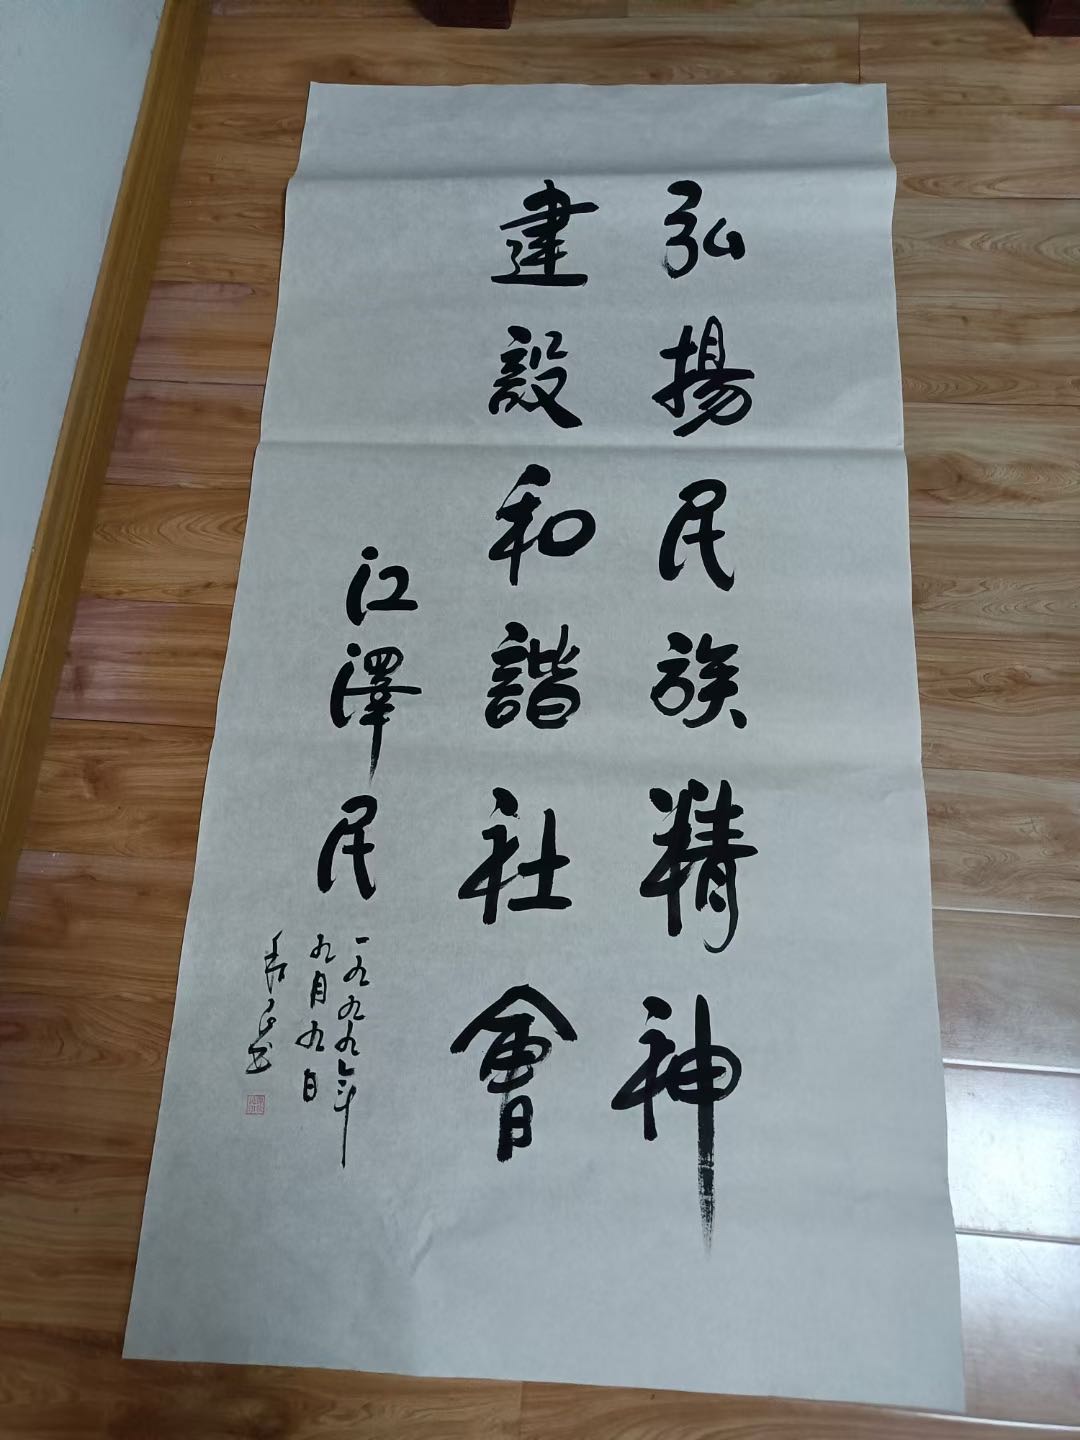 弘揚民族精神
建設和諧社會
江澤民
一九九九年
九月九日
书